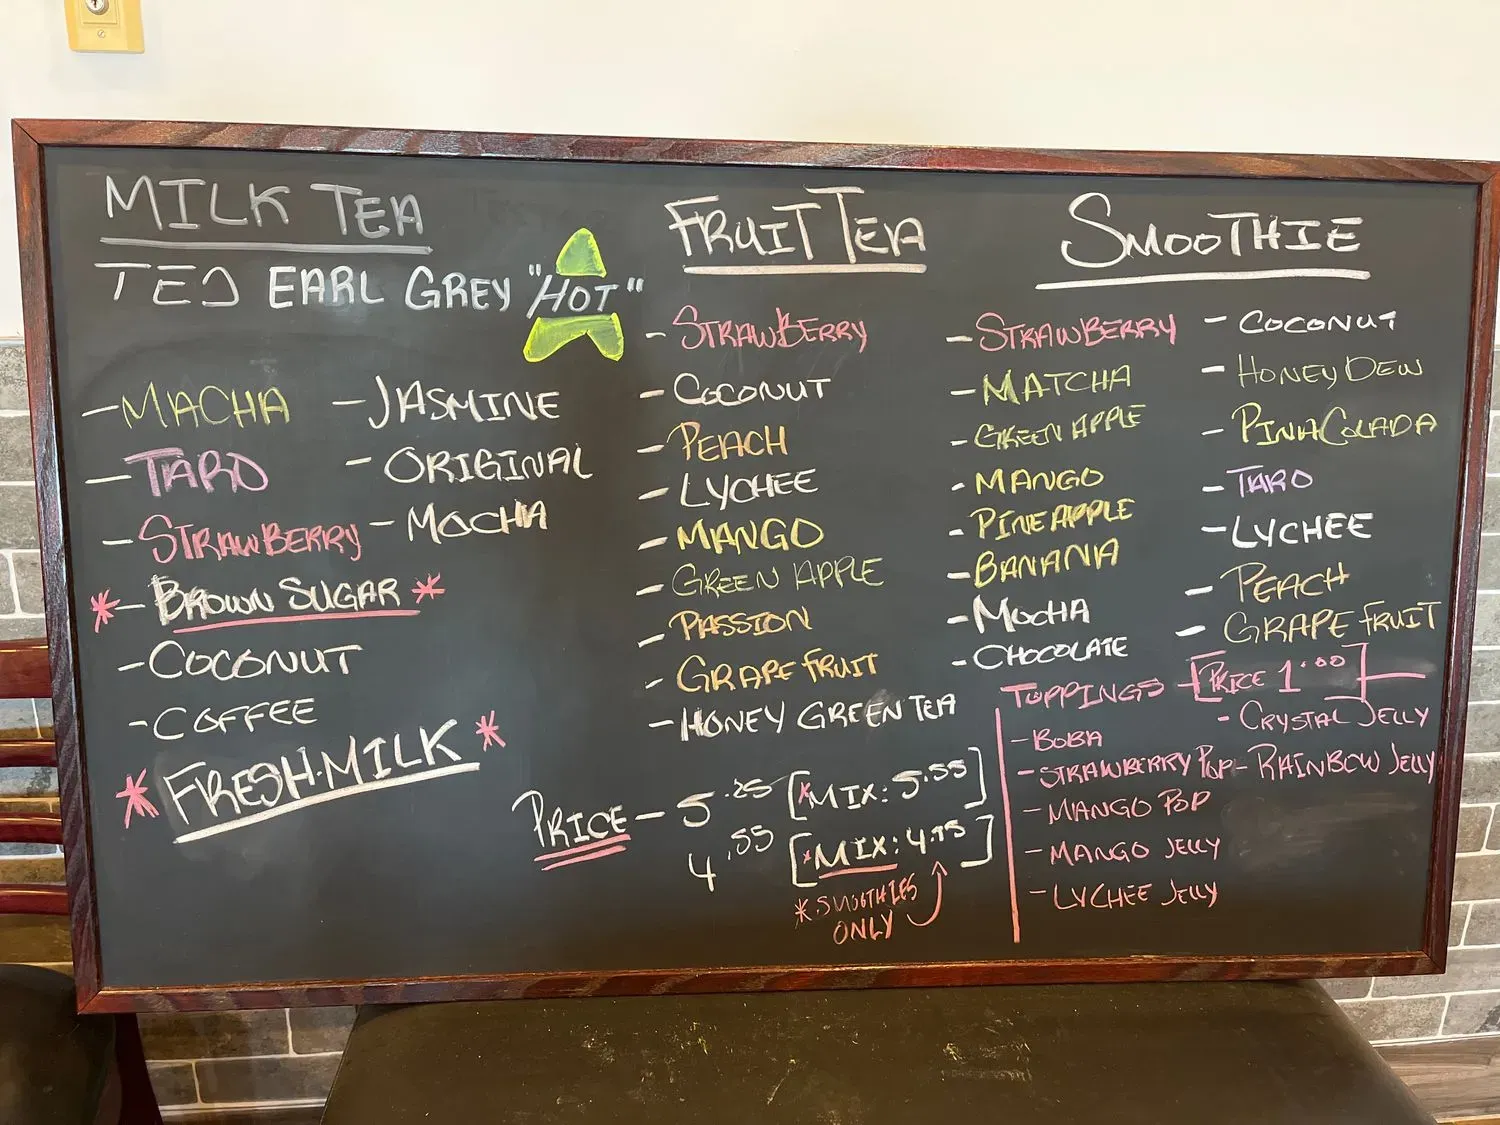 MILK TEA
EARL GREY "HOT"
- MACHA
- TARO
- STRAWBERRY
*- BROWN SUGAR *
- COCONUT
- COFFEE
* FRESH MILK *
- JASMINE
- ORIGINAL
- MOCHA
FRUIT TEA
- STRAWBERRY
- COCONUT
- PEACH
- LYCHEE
- MANGO
- GREEN APPLE
- PASSION
- GRAPE FRUIT
- HONEY GREEN TEA
PRICE - 5.25 [*MIX: 5.55]
4.55 [*MIX: 4.75]
* SMOOTHIES
ONLY
SMOOTHIE
- STRAWBERRY
- MATCHA
- GREEN APPLE
- MANGO
- PINEAPPLE
- BANANA
- MOCHA
- CHOCOLATE
- COCONUT
- HONEY DEW
- PINA COLADA
- TARO
- LYCHEE
- PEACH
- GRAPE FRUIT
TOPPINGS - [PRICE 1.00]
- BOBA
- STRAWBERRY POP
- MANGO POP
- MANGO JELLY
- LYCHEE JELLY
- CRYSTAL JELLY
- RAINBOW JELLY